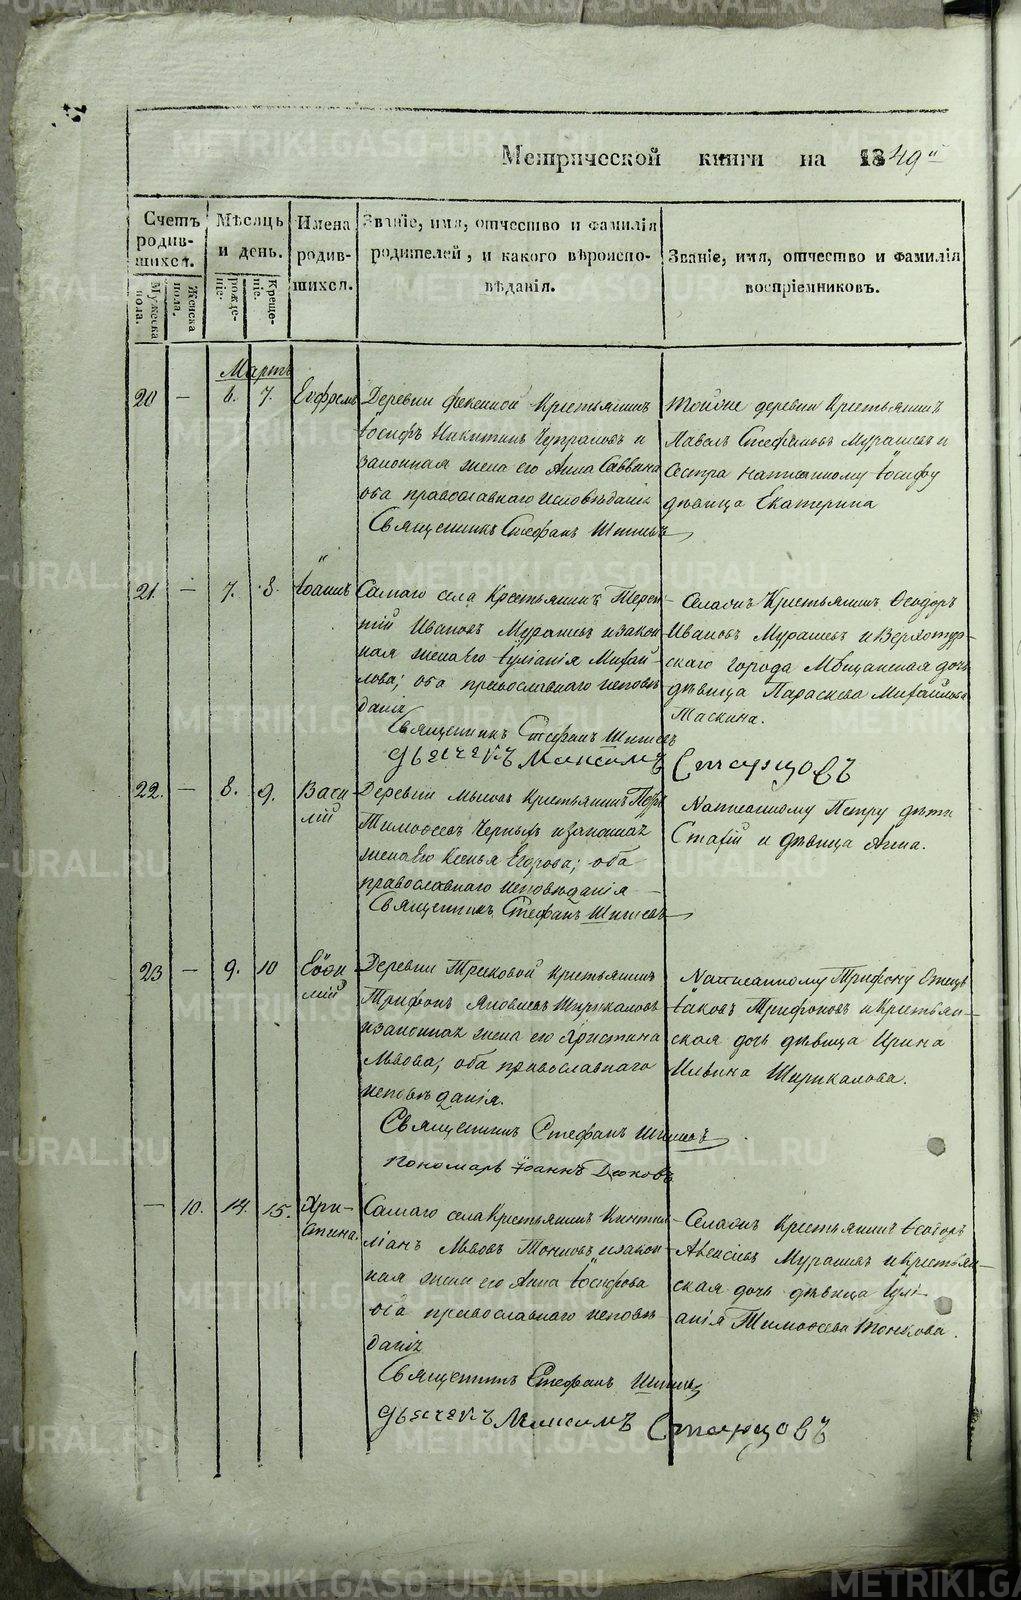 METRIKI.GASO-URAL.RU
Метрической книги на 1849й
Счетъ родив- шихся.
Мужеска пола.
Женска пола.
Мѣсяцъ и день.
рожде- ніе.
Креще- ніе.
Имена родив- шихся.
Званіе, имя, отчество и фамилія
родителей, и какого вѣроиспо-
вѣданія.
Званіе, имя, отчество и фамилія
воспріемниковъ.
Мартъ
20 — 6. 7. Евфремъ
Деревни крестьянинъ
Іосифъ Никитинъ и
законная жена его Анна Саввина
оба православнаго исповѣданія
Священникъ Стефанъ
Тойже деревни Крестьянинъ
Павелъ Стефановъ Мурашевъ и
Сестра написанному Іосифу
дѣвица Екатерина
21. — 7. 8. Іоаннъ
Самаго села Крестьянинъ Терен-
тій Ивановъ Мурашевъ и закон-
ная жена его Іуліанія Михай-
лова; оба православнаго исповѣ-
данія
Священникъ Стефанъ
Дьячекъ Максимъ Старцовъ
Селаонъ Крестьянинъ Ѳеодоръ
Ивановъ Мурашевъ и Верхотур-
скаго города Мѣщанская дочь
дѣвица Параскева Михайлова
Таскина.
22. — 8. 9. Васи-
лій
Деревни Крестьянинъ Петръ
Тимоѳеевъ Черныхъ и законная
жена его Ксенья Егорова; оба
православнаго исповѣданія
Священникъ Стефанъ
Написанному Петру дѣти
Стахій и дѣвица Анна.
23 — 9. 10 Евѳи-
мій
Деревни Крестьянинъ
Трифонъ Яковлевъ Ширикаловъ
и законная жена его Христина
Львова; оба православнаго
исповѣданія.
Священникъ Стефанъ
Пономарь Іоаннъ
Написанному Трифону Отецъ
Іаковъ Трифоновъ и крестьян-
ская дочь дѣвица Ирина
Ильина Ширикалова.
— 10. 14. 15. Хри-
стина.
Самаго села Крестьянинъ Кинтил-
ліанъ Львовъ Тонковъ и закон-
ная жена его Анна Іосифова
оба православнаго исповѣ-
данія
Священникъ Стефанъ
Дьячекъ Максимъ Старцовъ
Селаонъ Крестьянинъ Ѳеодоръ
Алексіевъ Мурашевъ и крестьян-
ская дочь дѣвица Іулі-
анія Тимоѳеева Тонкова.